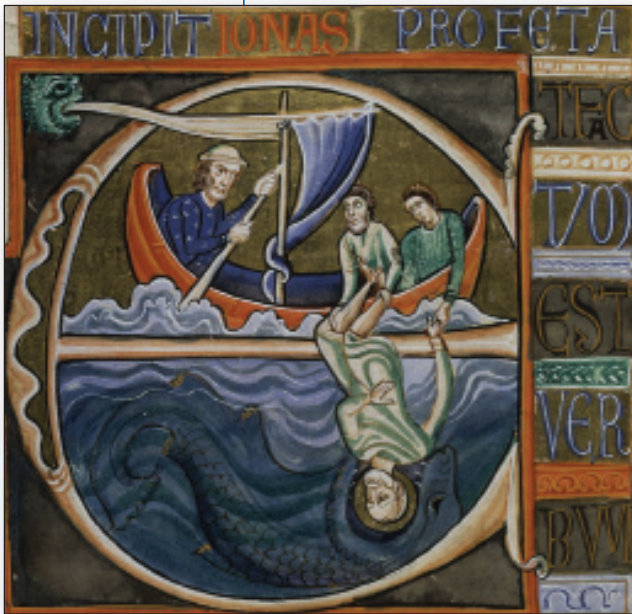 INCIPIT IONAS PROFETA
T FAC
TVM
EST
VER
BVM